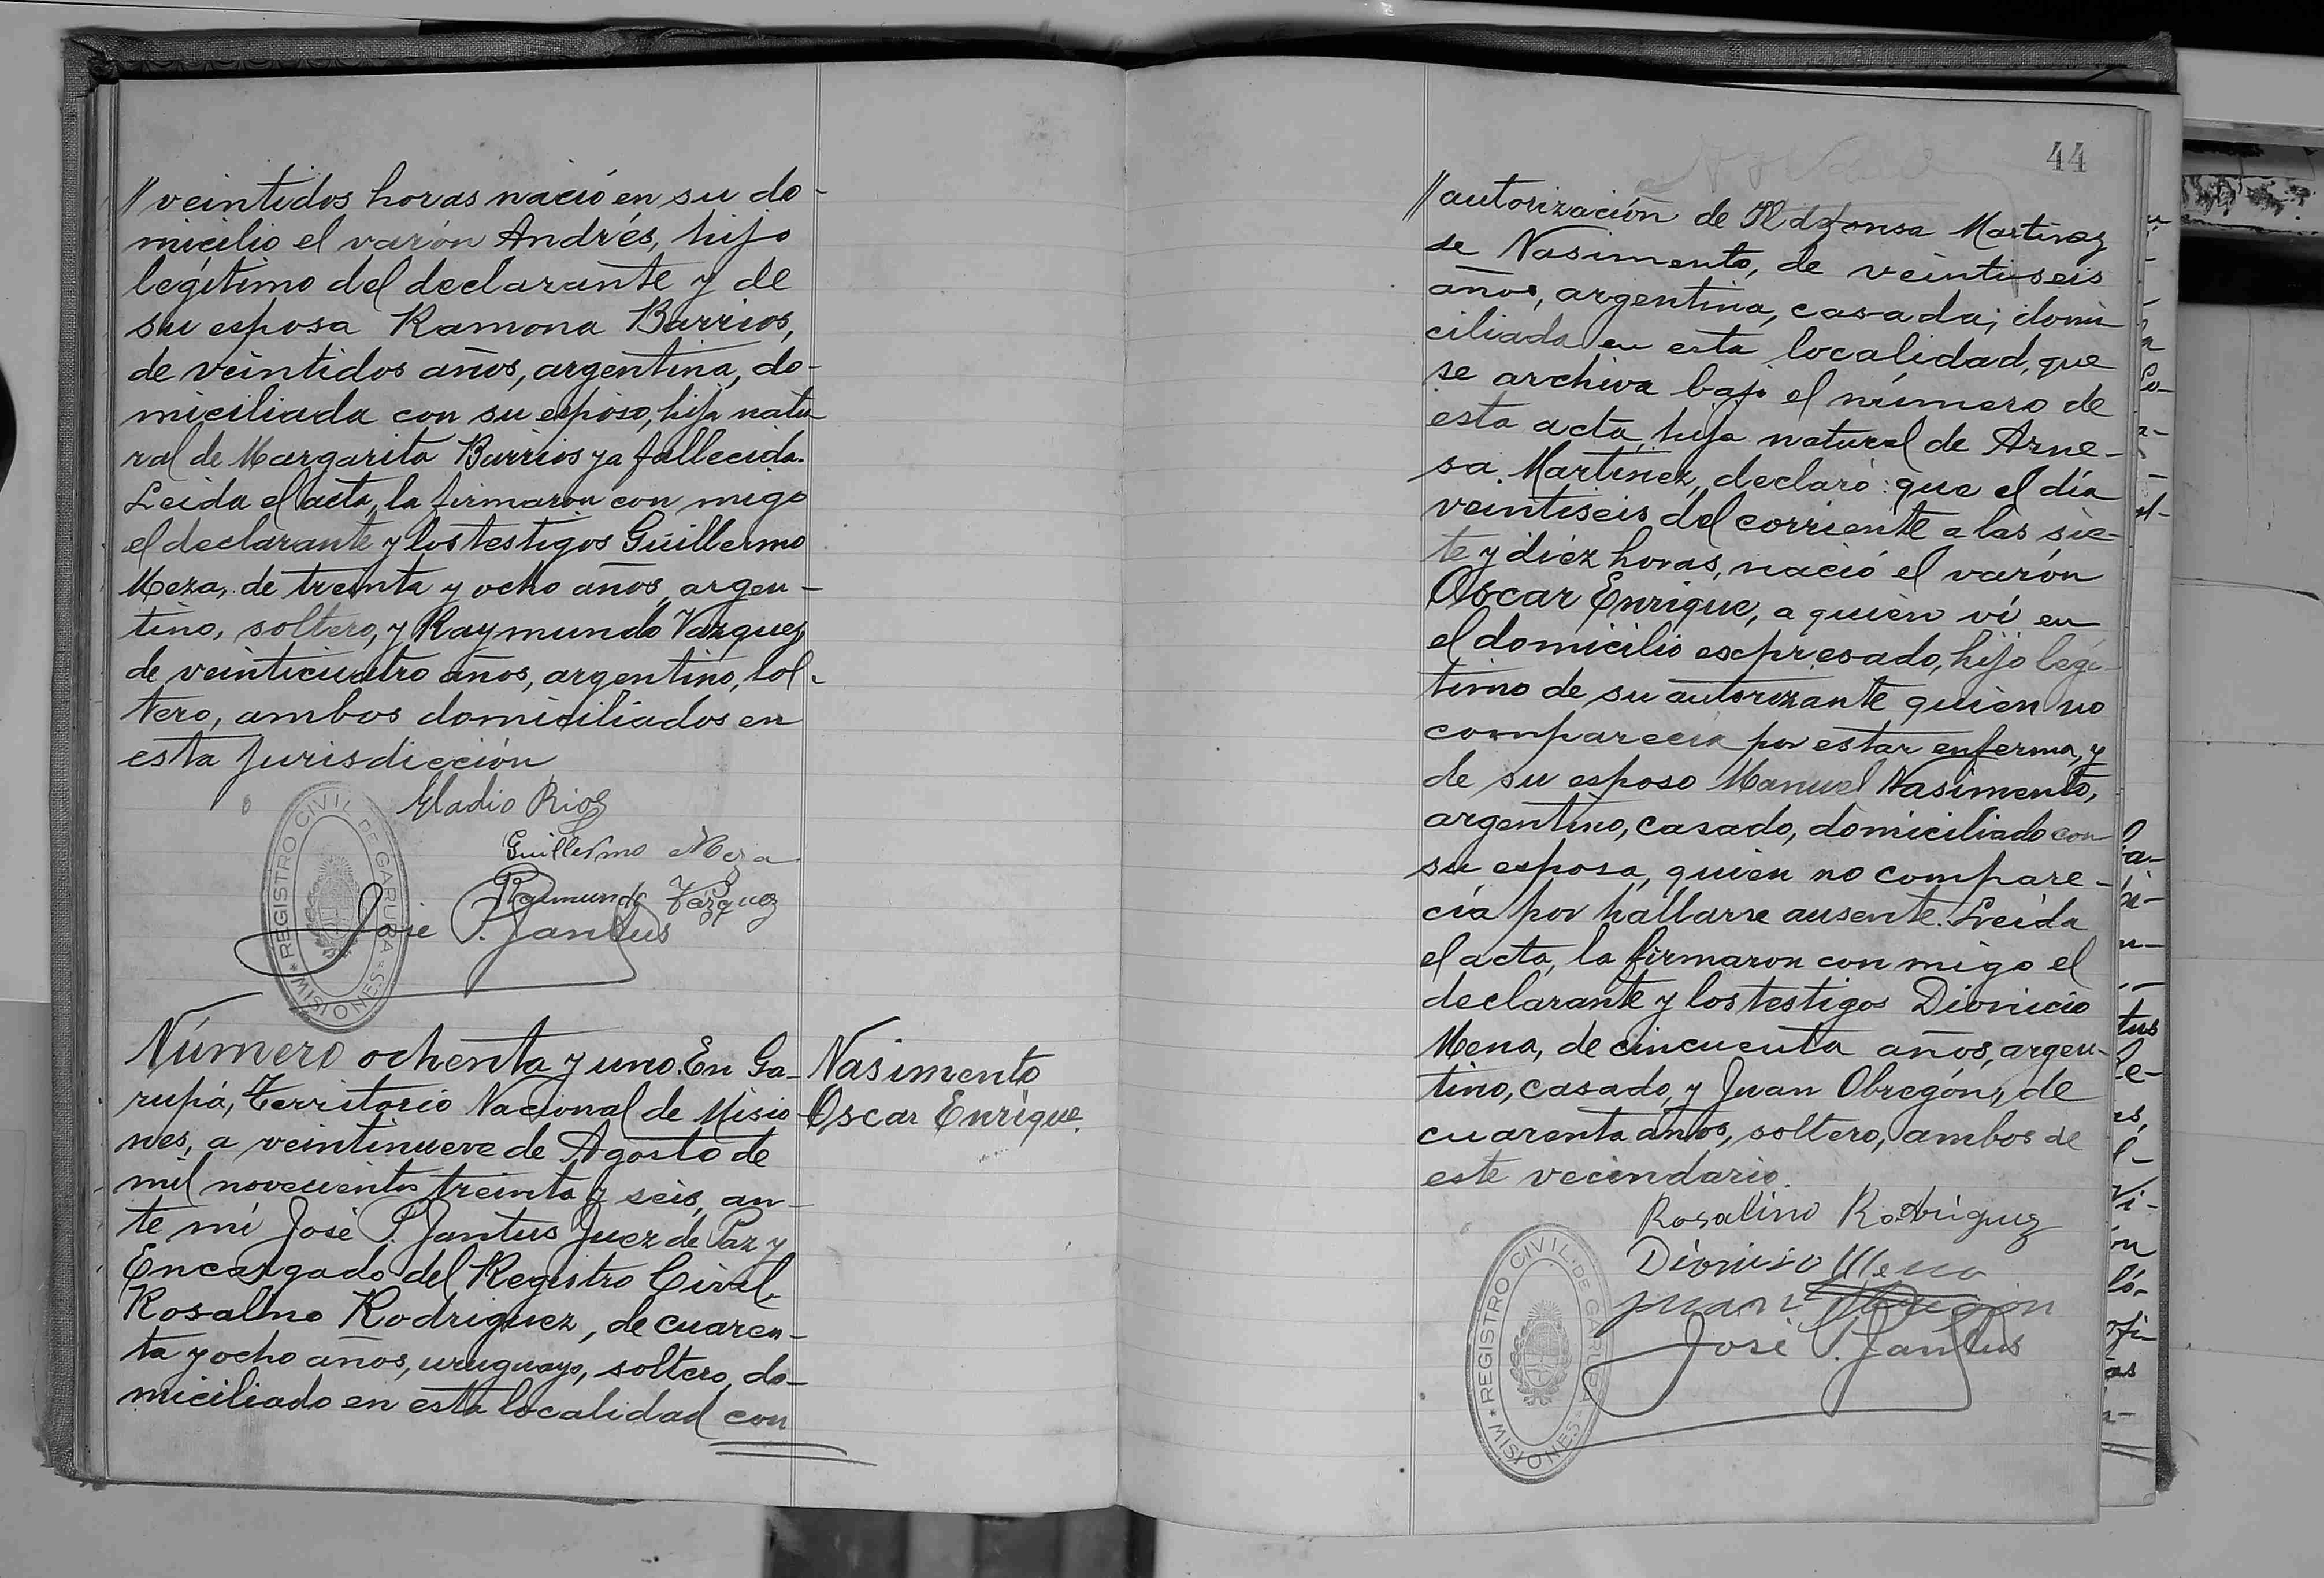 // veintidos horas nació en su do-
micilio el varón Andrés, hijo
legítimo del declarante y de
su esposa Ramona Barrios,
de veintidos años, argentina, do-
miciliada con su esposo, hija natu-
ral de Margarita Barrios ya fallecida.
Leida el acta, la firmaron con migo
el declarante y los testigos Guillermo
Meza, de treinta y ocho años, argen-
tino, soltero, y Raymundo Vazquez,
de veinticuatro años, argentino, sol-
tero, ambos domiciliados en
esta jurisdicción
Eladio Rios
Guillermo Meza
Raimundo Vázquez
José P. Jantus
REGISTRO CIVIL DE GARUPA - MISIONES *
Número ochenta y uno. En Ga-
rupá, Territorio Nacional de Misio-
nes, a veintinueve de Agosto de
mil novecientos treinta y seis, an-
te mí José P. Jantus Juez de Paz y
Encargado del Registro Civil.
Rosalino Rodriguez, de cuaren-
ta y ocho años, uruguayo, soltero, do-
miciliado en esta localidad con
Nasimento
Oscar Enrique.
44
// autorización de Ildefonsa Martinez
de Nasimento, de veintiseis
años, argentina, casada; domi-
ciliada en esta localidad, que
se archiva bajo el número de
esta acta, hija natural de Arne-
sa Martinez, declaró: que el día
veintiseis del corriente a las sie-
te y diez horas, nació el varón
Oscar Enrique, a quien ví en
el domicilio expresado, hijo legí-
timo de su autorizante quien no
comparecía por estar enferma, y
de su esposo Manuel Nasimento,
argentino, casado, domiciliado con
su esposa, quien no compare-
cía por hallarse ausente. Leida
el acta, la firmaron con migo el
declarante y los testigos Dionicio
Mena, de cincuenta años, argen-
tino, casado, y Juan Obregón, de
cuarenta años, soltero, ambos de
este vecindario.
Rosalino Rodriguez
Dionisio Mena
Juan Obregon
José P. Jantus
REGISTRO CIVIL DE GARUPA - MISIONES *